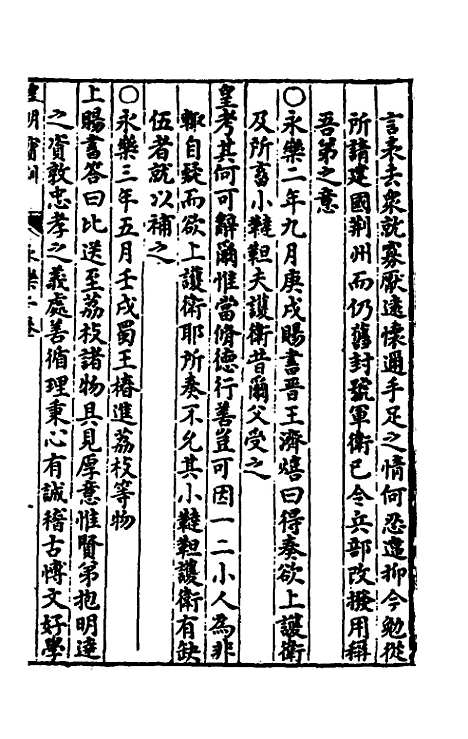 言來去衆就寡厭遠懷邇手足之情何忍違抑今勉從
所請建國荆州而仍舊封號軍衛已令兵部改撥用稱
吾弟之意
○永樂二年九月庚戌賜書晋王濟熺曰得奏欲上護衛
及所畜小韃靼夫護衛昔爾父受之
皇考其何可辭爾惟當脩德行善豈可因一二小人為非
輒自疑而欲上護衛耶所奏不允其小韃靼護衛有缺
伍者就以補之
○永樂三年五月壬戌蜀王椿進荔枝等物
上賜書答曰比送至荔枝諸物具見厚意惟賢弟抱明達
之資敦忠孝之義處善循理秉心有誠稽古博文好學
皇明寶訓 永樂二卷